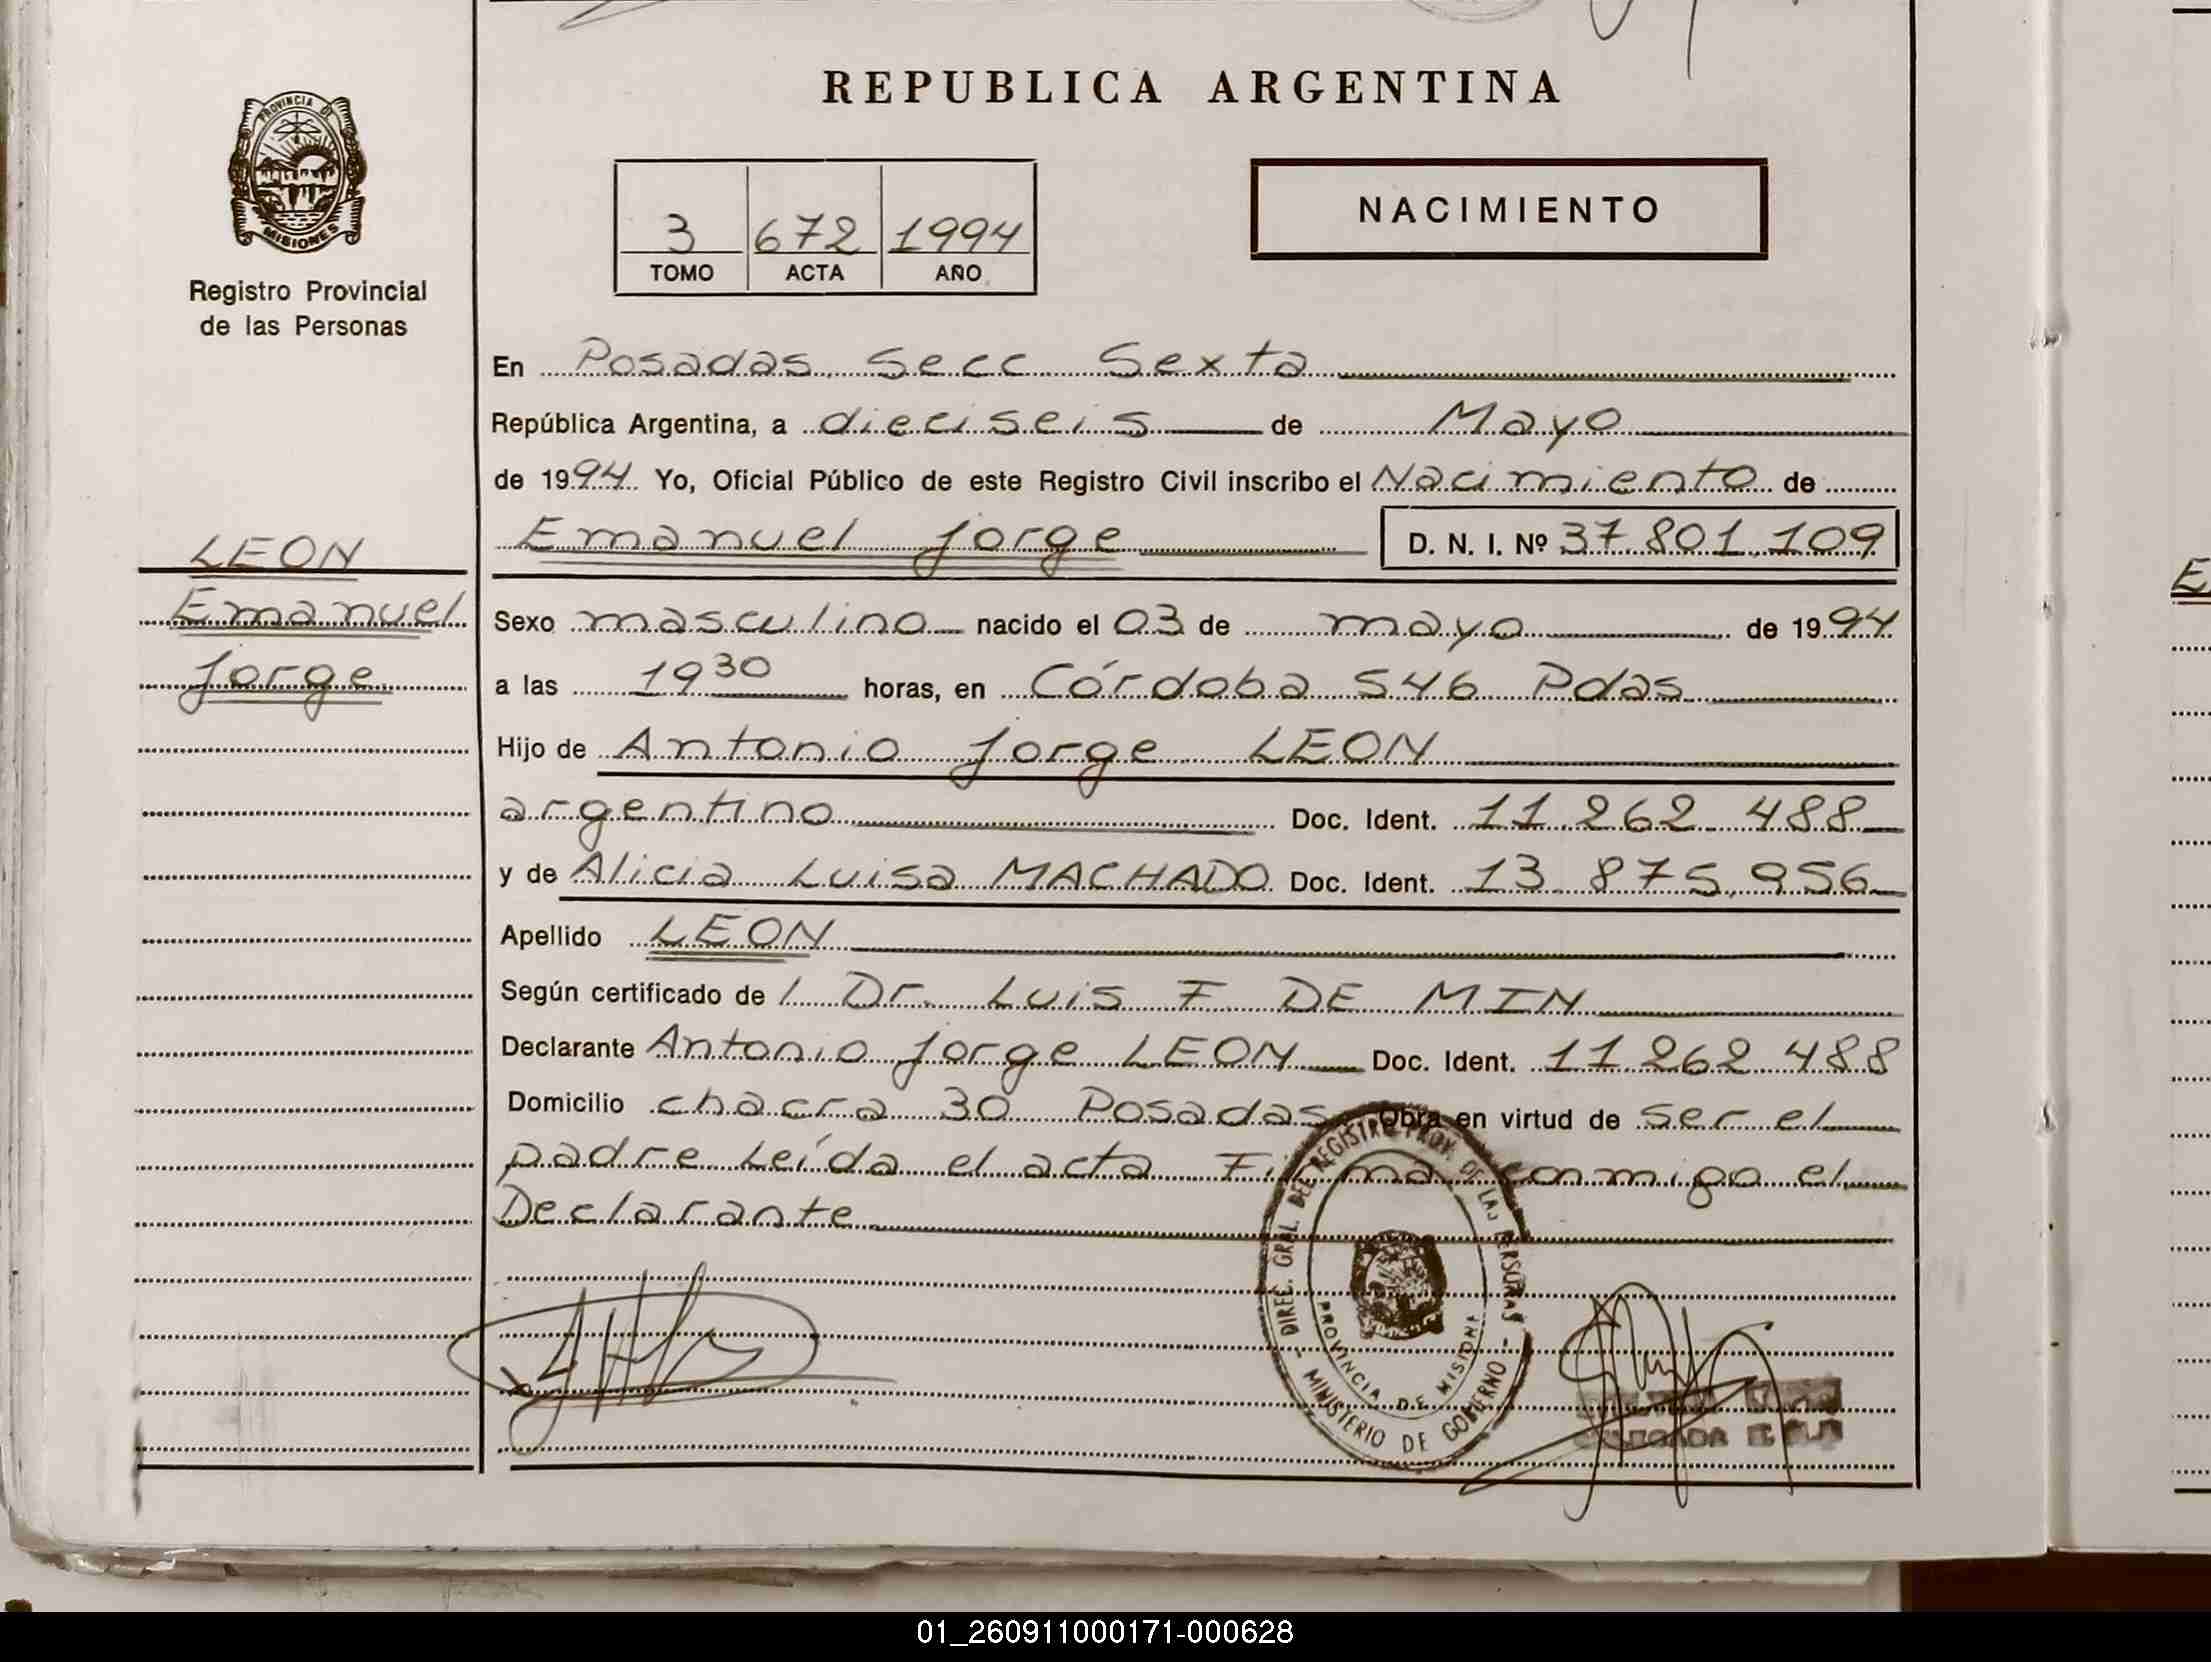 REPUBLICA ARGENTINA
PROVINCIA DE
MISIONES
Registro Provincial
de las Personas
3 672 1994
TOMO ACTA AÑO
NACIMIENTO
En Posadas Secc Sexta
República Argentina, a dieciseis de Mayo
de 1994 Yo, Oficial Público de este Registro Civil inscribo el Nacimiento de
Emanuel Jorge D. N. I. Nº 37 801 109
LEON
Emanuel
Jorge
Sexo masculino nacido el 03 de mayo de 1994
a las 19 30 horas, en Córdoba 546 Pdas
Hijo de Antonio Jorge LEON
argentino Doc. Ident. 11 262 488
y de Alicia Luisa MACHADO Doc. Ident. 13 875 956
Apellido LEON
Según certificado de / Dr. Luis F DE MIN
Declarante Antonio Jorge LEON Doc. Ident. 11 262 488
Domicilio chacra 30 Posadas Obra en virtud de ser el
padre Leída el acta Firma conmigo el
Declarante
DIREC. GRAL. DEL REGISTRO PROV. DE LAS PERSONAS
PROVINCIA DE MISIONES
- MINISTERIO DE GOBIERNO -
E
01_260911000171-000628